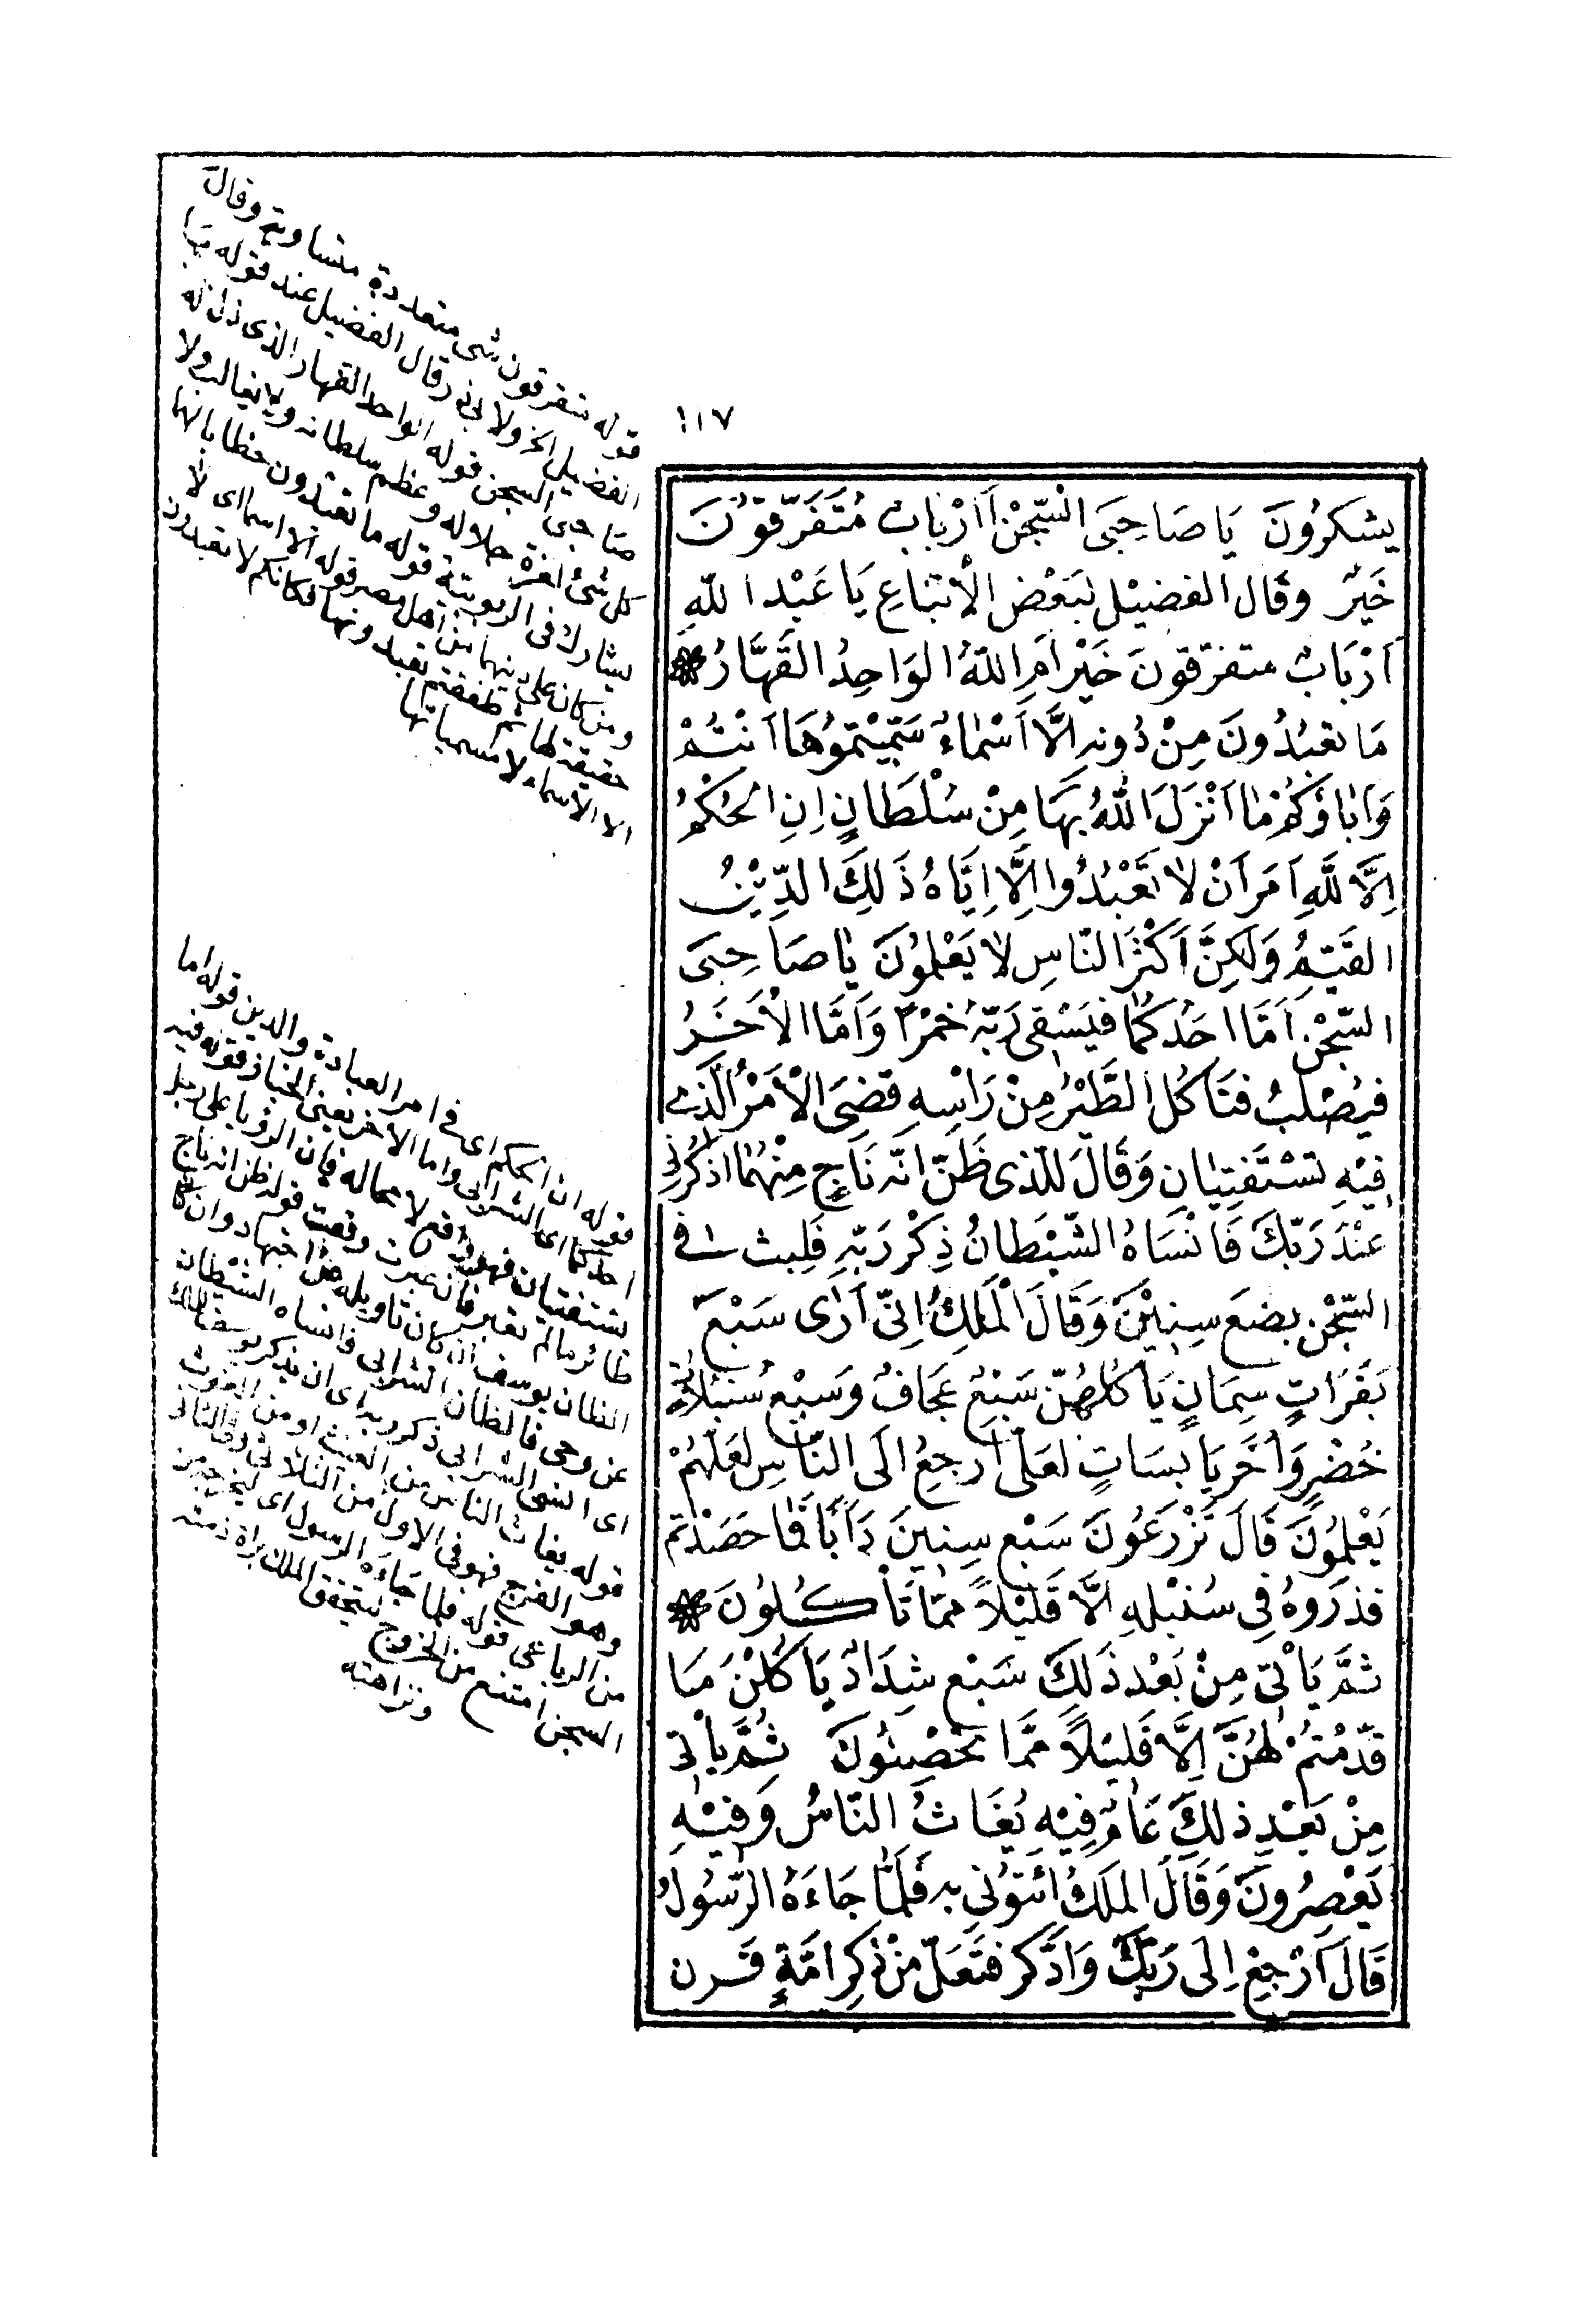 ١١٧
يشكرُونَ يَا صَاحِبَىِ السِّجْنِ أَأَرْبَابٌ مُتَفَرِّقوُنَ
خَيْرٌ وقَال الفضيْل لبَعْض الْاتبَاعِ يَا عَبْد اللهِ
أَرْبَابٌ متفرّقونَ خَيْر اَمِ اللهُ الوَاحِدُ القَهَّارُ *
مَا تعْبُدُونَ مِنْ دُونهِ اِلَّا اَسْمَاءً سَمَّيْتمُوُهَا اَنْتُمْ
وَاٰبَاؤكُمْ مَا اَنْزَلَ اللهُ بِهَا مِنْ سُلْطَانٍ اِنِ الحُكْمُ
اِلَّا للهِ اَمَرَ اَنْ لاٰ تَعْبُدُوا اِلَّا اِيَّاهُ ذَلِكَ الدِّيْنُ
القَيِّمُ وَلَكِنَّ اَكْثَرَ النَّاسِ لاٰ يَعْلَمُوُنَ يَا صَاحِبَى
السِّجْنِ اَمَّا اَحَدُكمُاٰ فيَسْقِى رَبّهُ خمْرًا وَاَمَّا الْاٰخَرُ
فيُصْلَبُ فتَاكُلُ الطَّيْرُ مِنْ رَاْسِهِ قضِىَ الْاَمْرُ الَّذِى
فِيْهِ تسْتَفْتِيَانِ وَقَالَ للّذى ظَنّ انّهُ نَاجٍ مِنْهُمَا اذْكُرْنِى
عِنْدَ رَبّكَ فَانْسَاهُ الشّيْطَانُ ذِكْرَ رَبّهِ فَلبِث فى
السّجْنِ بضعَ سِنِيْنَ وَقَالَ الْمَلِكُ اِنّى اَرٰى سَبْعَ
بَقَرَاتٍ سِمَانٍ يَاكُلُهُنّ سَبْعٌ عِجَافٌ وَسَبْعَ سُنبُلاتٍ
خُضْرٍ وَاُخَرَ يَابسَاتٍ لعَلّى اَرجِعُ اِلَى النَّاسِ لعَلّهُمْ
يَعْلمُونَ قَالَ تَزْرَعُونَ سَبْعَ سِنِينَ دَأبًا فَمَا حَصَدْتم
فذرُوهُ فِى سُنبُلهِ اِلَّا قَلِيْلاً ممّا تَاْكُلوُنَ *
ثمَّ يَاْتى مِنْ بَعْد ذَلِكَ سَبْع شِدَادٌ يَاكُلْنَ مَا
قدّمْتمُ لَهُنَّ اِلَّا قَلِيْلاً ممَّا تُحْصِنُونَ ثُمَّ يَاْتى
مِنْ بَعْدِ ذلِكَ عَامٌ فِيْهِ يُغَاثُ النَّاسُ وَفِيْهِ
يَعْصِرُونَ وَقَالَ المَلكُ ائتوُنى بهِ فلَمَّا جَاءَهُ الرّسُولُ
قَالَ اَرْجِعْ اِلَى رَبّكَ وَادّكر فتَعَلّ مِنْ ذكِر امّةٍ قرن
قوله متفرقون شى متعددة متساوية وقال
الفضيل الخ ولابى ذر قال الفضيل عند قوله يا
صاحبى السجن قوله الواحد القهار الذى ذل له
كل شئ لعزة جلاله وعظم سلطانه ولا يغالب ولا
يشارك فى الربوبية قوله ما تعبدون خطابا لهما
ومن كان على دينهما من اهل مصر قوله الا اسما اى لا
حقيقة لها ثم طفقتم تعبدونها فكانكم لا تعبدون
الا الاسماء لا مسمياتها
قوله ان الحكم اى فى امر العبادة والدين قوله اما
احدكما اى الشرابى واما الاخر يعنى الخباز قوله فيه
تستفتيان فهو واقع لا محاله فان الرؤيا على رجل
طائر مالم تعبر فان عبرت وقعت قوله ظن انه ناج
الظان يوسف ان كان تاويله اجتهاد وان كان
عن وحى فالظان الشرابى فانساه الشيطان
اى انسى الشرابى ذكر ربه اى ان يذكر يوسف للملك
قوله يغاث الناس من الغيث او من الغوث
وهو الفرج فهو فى الاول من الثلاثى وفى الثانى
من الرباعى قوله فلما جاءه الرسول اى ليخرجه من
السجن امتنع من الخروج ليتحقق الملك براة ذمته
ونزاهته